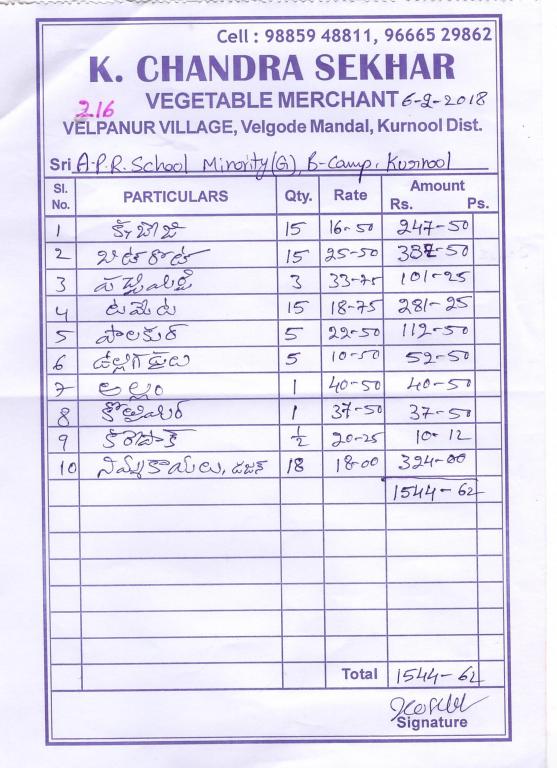 Cell : 98859 48811, 96665 29862
K. CHANDRA SEKHAR
216 VEGETABLE MERCHANT 6-9-2018
VELPANUR VILLAGE, Velgode Mandal, Kurnool Dist.
Sri A.P.R. School Minority(G), B-Camp, Kurnool
Sl. No. PARTICULARS Qty. Rate Amount Rs. Ps.
1 క్యాబేజి 15 16-50 247-50
2 బీట్‌రూట్ 15 25-50 382-50
3 పచ్చిమిర్చి 3 33-75 101-25
4 టమేట 15 18-75 281-25
5 పాలకూర 5 22-50 112-50
6 ఉల్లిగడ్డలు 5 10-50 52-50
7 అల్లం 1 40-50 40-50
8 కొత్తిమీర 1 37-50 37-50
9 కరేపాక్ 1/2 20-25 10-12
10 నిమ్మకాయలు, డజన్ 18 18-00 324-00
1544-62
Total 1544-62
Signature